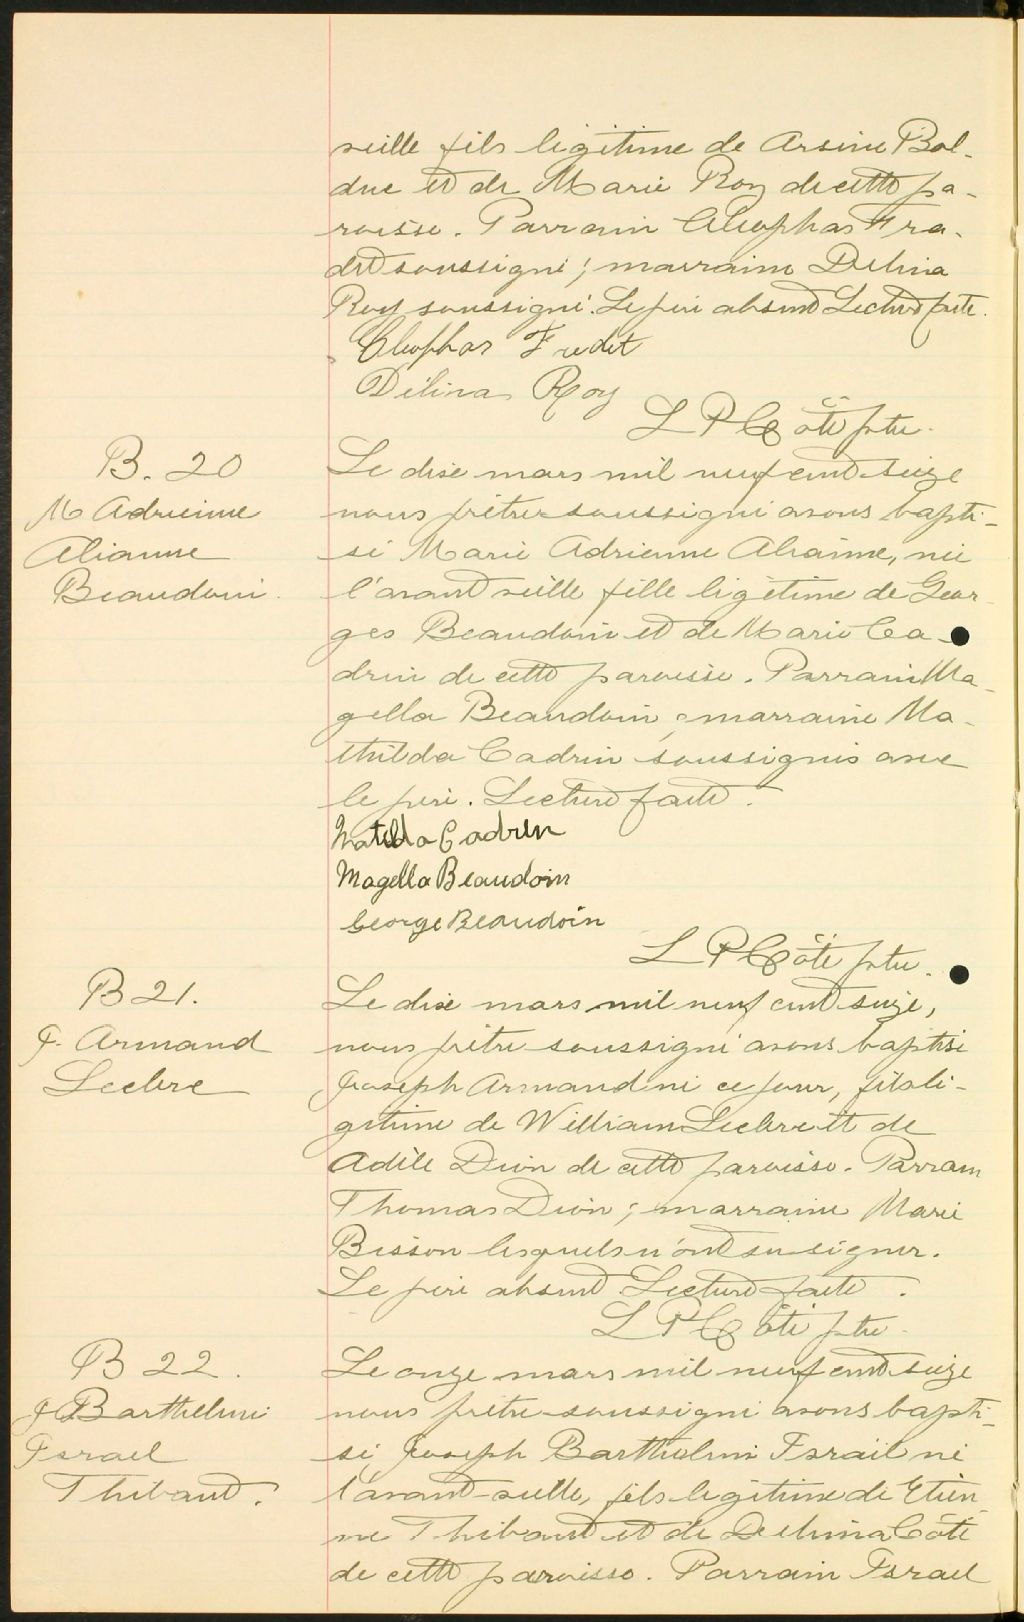 veille fils légitime de Arsène Bol-
duc et de Marie Roy de cette pa-
roisse. Parrain Cléophas Fra-
det soussigné; marraine Délina
Roy soussigné. Le père absent Lecture faite.
Cléophas Fradet
Délina Roy
L P Côté ptre.
B. 20
M Adrienne
Alianne
Beaudoin.
Le dixe mars mil neuf cent seize
nous prêtre soussigné avons bapti-
sé Marie Adrienne Alianne, née
l'avant veille fille légitime de Geor-
ges Beaudoin et de Marie Ca-
drin de cette paroisse. Parrain Ma-
gella Beaudoin; marraine Ma-
thilda Cadrin soussignés avec
le père. Lecture faite.
Matilda Cadrin
Magella Beaudoin
George Beaudoin
L P Côté ptre.
B 21.
J. Armand
Leclere
Le dixe mars mil neuf cent seize,
nous prêtre soussigné avons baptisé
Joseph Armand né ce jour, fils lé-
gitime de William Leclere et de
Adèle Dion de cette paroisse. Parrain
Thomas Dion; marraine Marie
Bisson lesquels n'ont su signer.
Le père absent. Lecture faite.
L P Côté ptre.
B 22.
J Barthelmi
Israel
Thibaut.
Le onze mars mil neuf cent seize
nous prêtre soussigné avons bapti-
sé Joseph Barthelmi Israël né
l'avant-veille, fils légitime de Etien-
ne Thibaut et de Delvina Côté
de cette paroisse. Parrain Israel